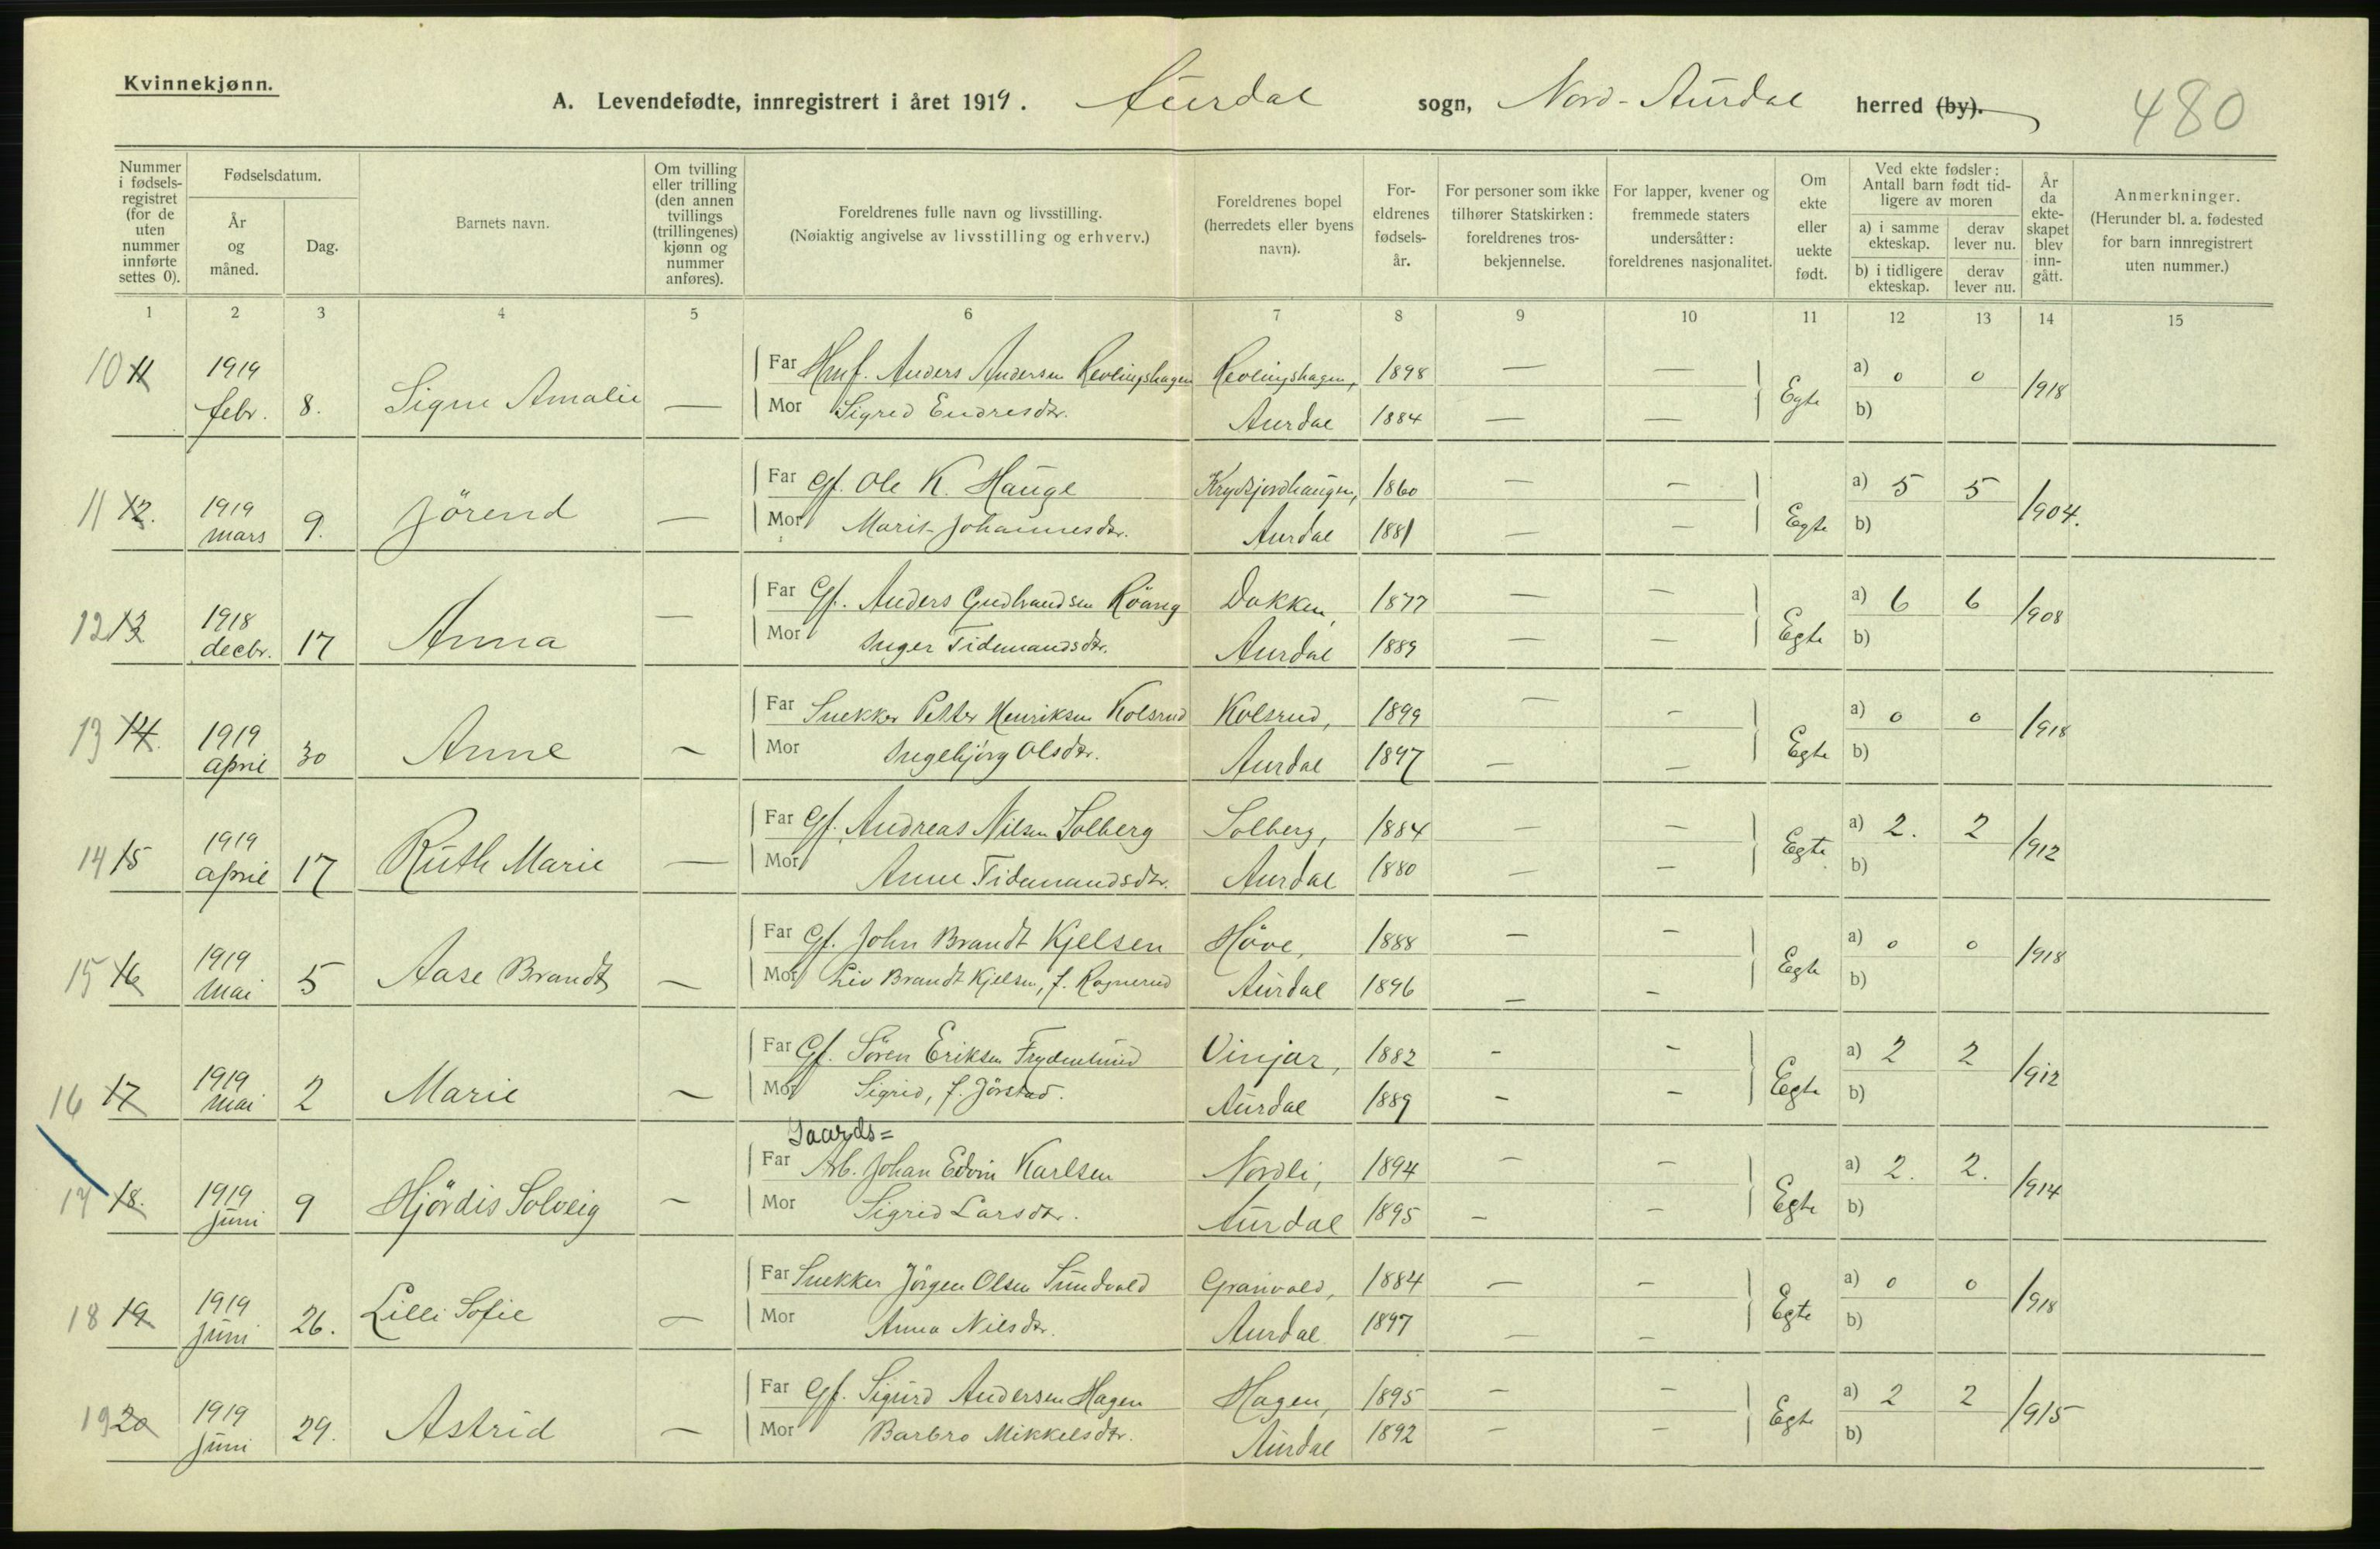 Kvinnekjønn.
A. Levendefødte, innregistrert i året 1919. Aurdal sogn, Nord-Aurdal herred (by).
480
Nummer i fødsels-registret (for de uten nummer innførte settes 0).
Fødselsdatum.
År og måned.
Dag.
Barnets navn.
Om tvilling eller trilling (den annen tvillings (trillingenes) kjønn og nummer anføres).
Foreldrenes fulle navn og livsstilling.
(Nøiaktig angivelse av livsstilling og erhverv.)
Foreldrenes bopel (herredets eller byens navn).
For-eldrenes fødsels-år.
For personer som ikke tilhører Statskirken: foreldrenes tros-bekjennelse.
For lapper, kvener og fremmede staters undersåtter: foreldrenes nasjonalitet.
Om ekte eller uekte født.
Ved ekte fødsler: Antall barn født tid-ligere av moren
a) i samme ekteskap.
derav lever nu.
b) i tidligere ekteskap.
derav lever nu.
År da ekte-skapet blev inn-gått.
Anmerkninger.
(Herunder bl. a. fødested for barn innregistrert uten nummer.)
1 2 3 4 5 6 7 8 9 10 11 12 13 14 15
10 11 1919 febr. 8. Signe Amalie — Far Hmf. Anders Andersen Revlingshagen Revlingshagen, 1898 — — Egte a) 0 0 1918
Mor Sigrid Endresdtr. Aurdal 1884 — — b)
11 12. 1919 mars 9. Jörend — Far Gf. Ole K. Hauge 1860 — — Egte a) 5 5 1904.
Mor Marit Johannesdtr. Aurdal 1881 — — b)
12 13 1918 decbr. 17 Anna — Far Gf. Anders Gudbrandsen Röang Dokken, 1877 — — Egte a) 6 6 1908
Mor Inger Tidemandsdtr. Aurdal 1889 — — b)
13 14. 1919 april 30 Anne — Far Snekker Petter Henriksen Kolsrud Kolsrud, 1899 — — Egte a) 0 0 1918
Mor Ingebjörg Olsdtr. Aurdal 1897 — — b)
14 15 1919 april 17 Ruth Marie — Far Gf. Andreas Nilsen Solberg Solberg, 1884 — — Egte a) 2. 2 1912
Mor Anne Tidemandsdtr. Aurdal 1880 — — b)
15 16 1919 mai 5 Aase Brandt — Far Gf. John Brandt Kjelsen Höve, 1888 — — Egte a) 0 0 1918
Mor Liv Brandt Kjelsen, f. Rognerud Aurdal 1896 — — b)
16 17 1919 mai 2 Marie — Far Gf. Sören Eriksen Frydenlund Vinjar, 1882 — — Egte a) 2 2 1912
Mor Sigrid, f. Jörstad. Aurdal 1889 — — b)
Gaards=
17 18. 1919 juni 9 Hjördis Solveig — Far Arb. Johan Edvin Karlsen Nordli, 1894 — — Egte a) 2. 2. 1914
Mor Sigrid Larsdtr. Aurdal 1895 — — b)
18 19 1919 juni 26. Lilli Sofie — Far Snekker Jörgen Olsen Sundvold Granvold, 1884 — — Egte a) 0 0 1918
Mor Anna Nilsdtr. Aurdal 1897 — — b)
19 20 1919 juni 29. Astrid — Far Gf. Sigurd Andersen Hagen Hagen, 1895 — — Egte a) 2 2 1915
Mor Barbro Mikkelsdtr. Aurdal 1892 — — b)